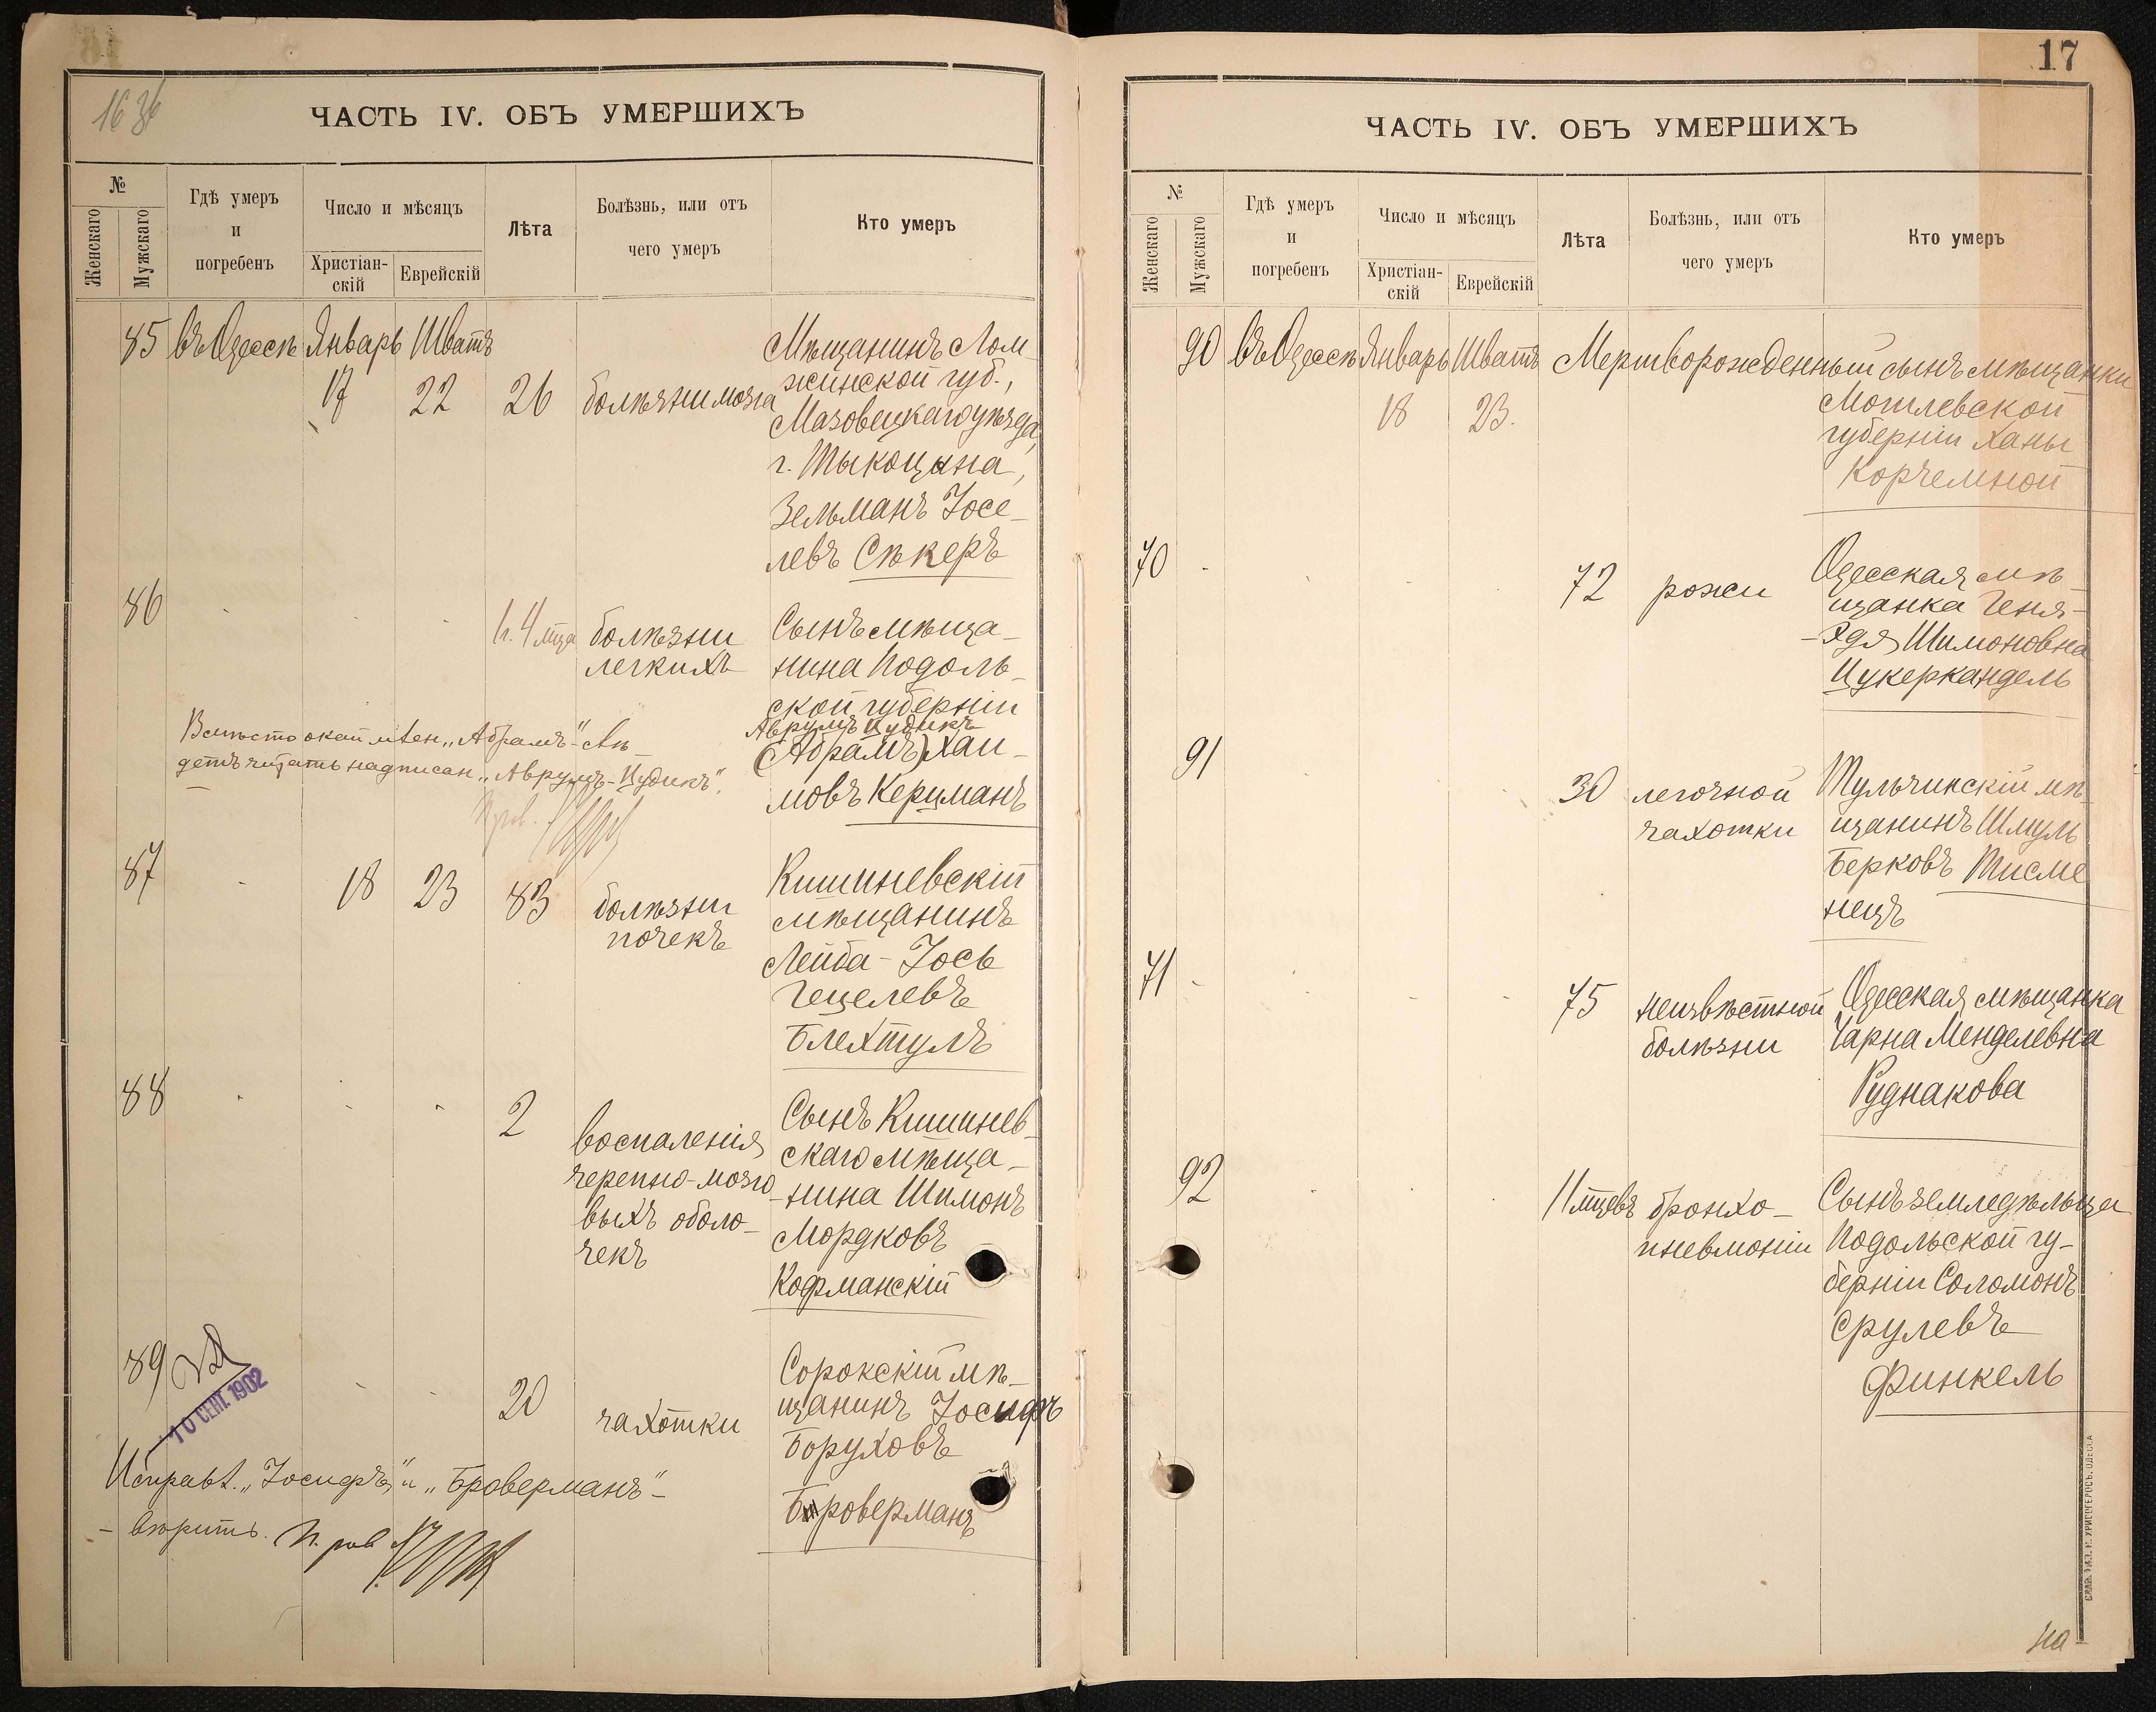 16 об
ЧАСТЬ IV. ОБЪ УМЕРШИХЪ
№
Женскаго
Мужскаго
Гдѣ умеръ
и
погребенъ
Число и мѣсяцъ
Христіан-
скій
Еврейскій
Лѣта
Болѣзнь, или отъ
чего умеръ
Кто умеръ
85 въ Одессѣ Январь Шватъ
17 22 26 болѣзни мозга
Мѣщанинъ Лом-
жинской губ.,
Мазовецкаго уѣзда,
г. Тыкоцина,
Зельманъ Іосе-
левъ Сѣкеръ
86 1 г. 4 мца болѣзни
легкихъ
Сынъ мѣща-
нина Подоль-
ской губерніи
Аврумъ Цудикъ
(Абрамъ) Хаи-
мовъ Керцманъ
Вмѣсто окаймлен. „Абрамъ" слѣ-
детъ читать надписан. „Аврумъ-Цудикъ".
87 18 23 83 болѣзни
почекъ
Кишиневскій
мѣщанинъ
Лейба-Іось
Гецелевъ
Блехтулъ
88 2 воспаленія
черепно-мозго-
выхъ оболо-
чекъ
Сынъ Кишинев-
скаго мѣща-
нина Шимонъ
Мордковъ
Кофманскій
89 20 чахотки
Сорокскій мѣ-
щанинъ Іосифъ
Боруховъ
Броверманъ
10 СЕНТ. 1902
Исправл. „Іосифъ" и „Броверманъ"-
- вѣрить. П. рав
17
ЧАСТЬ IV. ОБЪ УМЕРШИХЪ
№
Женскаго
Мужскаго
Гдѣ умеръ
и
погребенъ
Число и мѣсяцъ
Христіан-
скій
Еврейскій
Лѣта
Болѣзнь, или отъ
чего умеръ
Кто умеръ
90 въ Одессѣ Январь Шватъ Мертворожденный сынъ мѣщанки
18 23.
Могилевской
губерніи Ханы
Корчемной
70 72 рожи
Одесская мѣ-
щанка Геня-
-Эдя Шимоновна
Цукеркандель
91 30 легочной
чахотки
Тульчинскій мѣ-
щанинъ Шмуль
Берковъ Тисме
нецъ
71 75 неизвѣстной
болѣзни
Одесская мѣщанка
Чарна Менделевна
Руднакова
92 11 мцевъ бронхо-
пневмоніи
Сынъ земледѣльца
Подольской гу-
берніи Соломонъ
Срулевъ
Финкель
СЛАВ. ТИП. Н. ХРИСОГЕЛОСЪ. ОДЕССА
на-